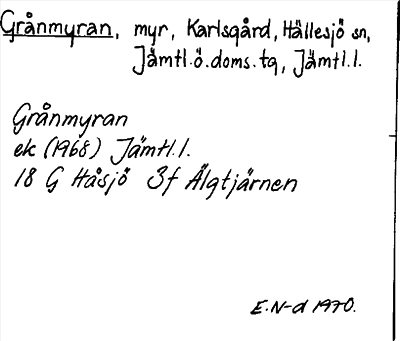 Grånmyran, myr, Karlsgård, Hällesjö sn,
Jämtl.ö.doms.tg, Jämtl.l.
Grånmyran
ek (1968) Jämtl.l.
18 G Håsjö 3f Älgtjärnen
E.N-d 1970.